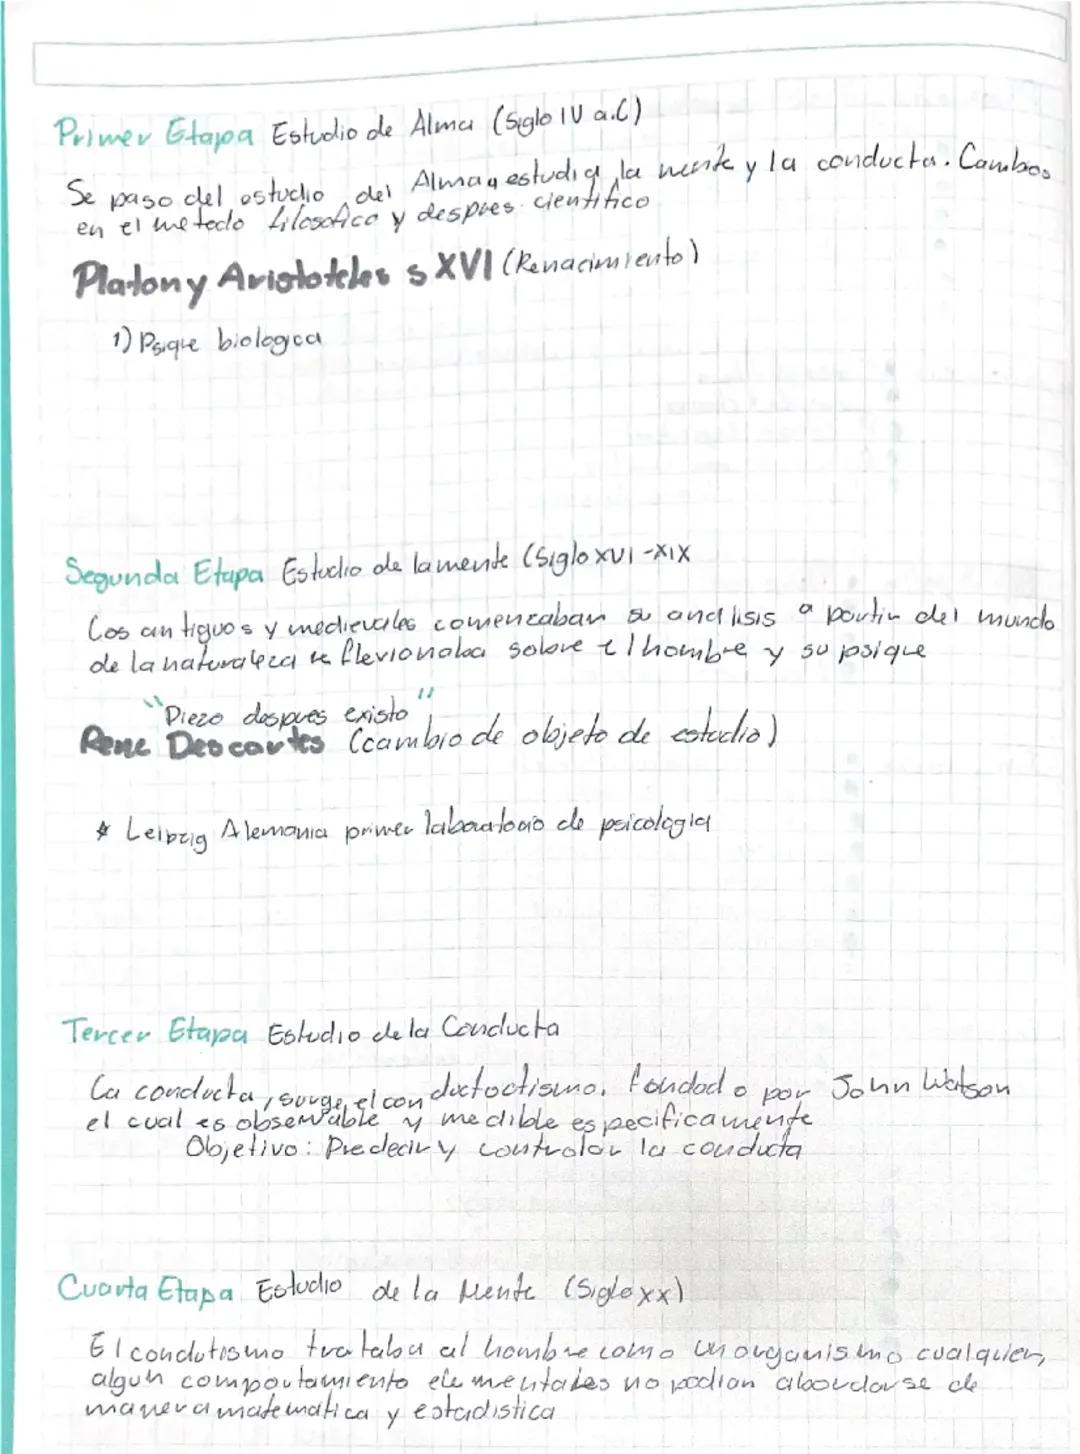 Primer Etapa Estudio de Alma (Siglo IV a.C)
Se paso del estudio del Alma a estudia la mente y la conducta. Cambios
en el metodo filosofico y despues cientifico
Platon y Aristoteles s XVI (Renacimiento)
1) Psique biologica
Segunda Etapa Estudio de la mente (Siglo XVI - XIX
Los antiguos y medievales comenzaban su analisis a partir del mundo
de la naturaleza re flexionaba sobre el hombre y su psique
"Piezo despues existo"
Rene Descartes (cambio de objeto de estudio)
* Leipzig Alemania primer laboratorio de psicologia
Tercer Etapa Estudio de la Conducta
La conducta, surge el conductoctismo, fondado por John Watson
el cual es observable y medible especificamente
Objetivo: Predecir y controlar la conducta
Cuarta Etapa Estudio de la Mente (Siglo XX)
El condutismo trataba al hombre como un organismo cualquier,
algun comportamiento ele mentales no podian abordarse de
manera matematica y estadistica